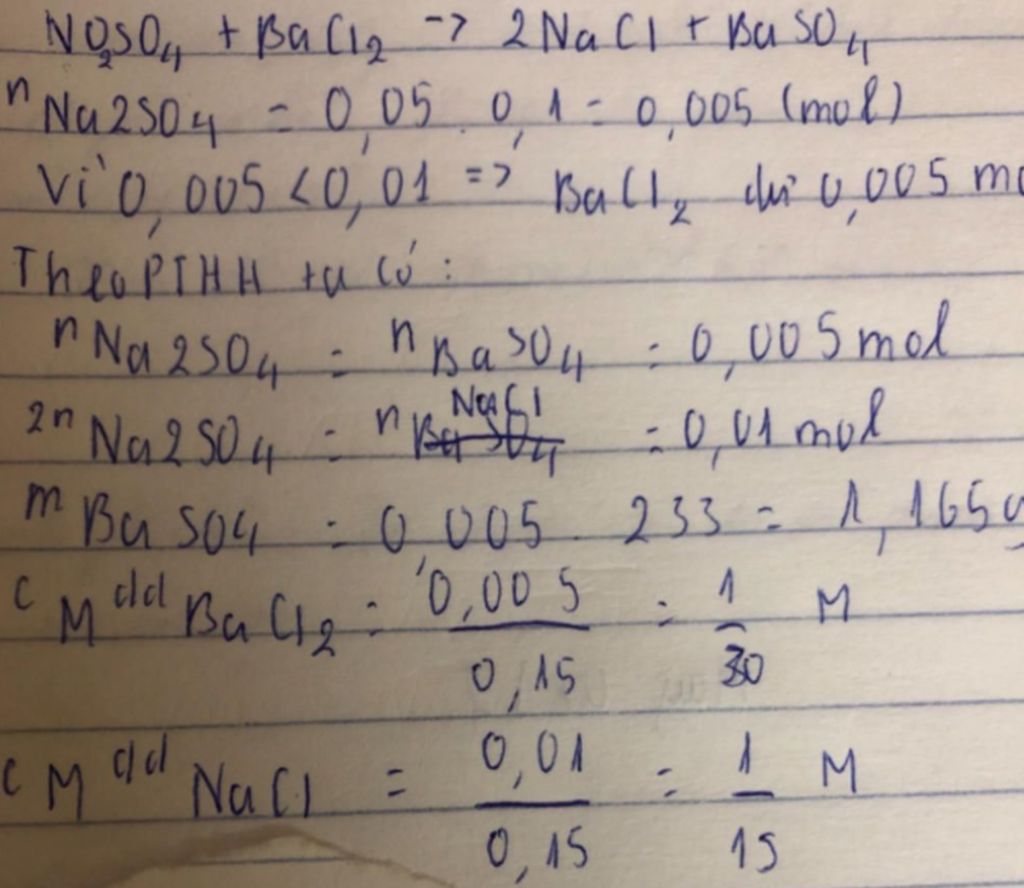 Na2SO4 + BaCl2 -> 2NaCl + BaSO4
nNa2SO4 = 0,05 . 0,1 = 0,005 (mol)
Vì 0,005 < 0,01 => BaCl2 dư 0,005 mo
Theo PTHH ta có:
nNa2SO4 = nBaSO4 = 0,005 mol
2nNa2SO4 = nNaCl = 0,01 mol
mBaSO4 = 0,005 . 233 = 1,165g
CM dd BaCl2 = 0,005 / 0,15 = 1/30 M
CM dd NaCl = 0,01 / 0,15 = 1/15 M